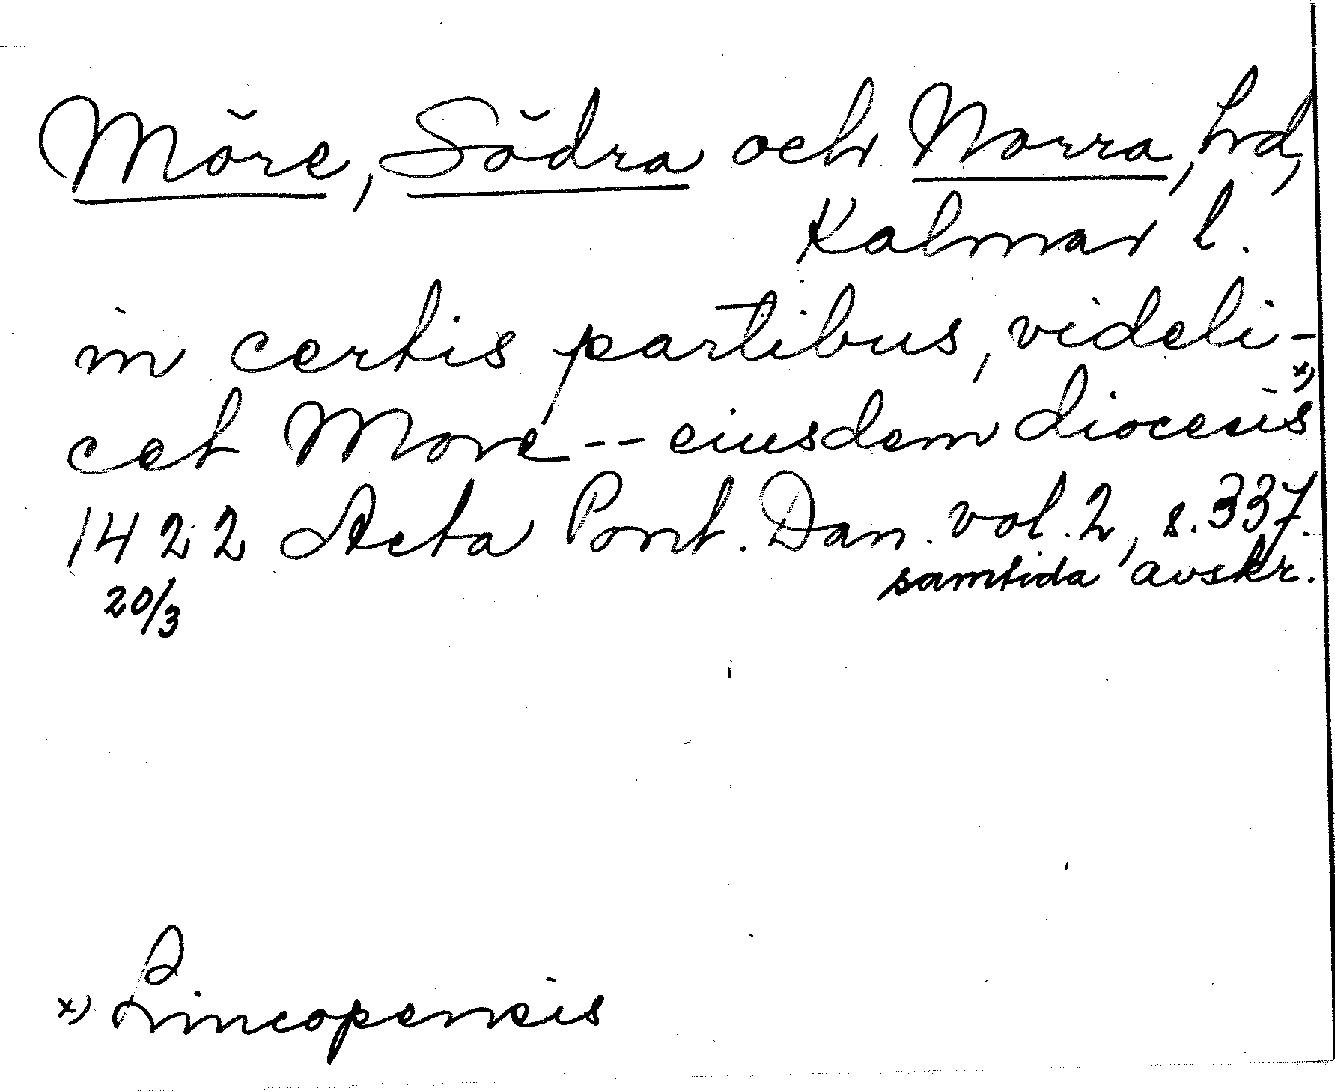 Möre, Södra och Norra, hd,
Kalmar l.
in certis partibus, videli-
cet More -- eiusdem diocesis x)
1422 Acta Pont. Dan. vol. 2, s. 337.
20/3 samtida avskr.
x) Lincopensis